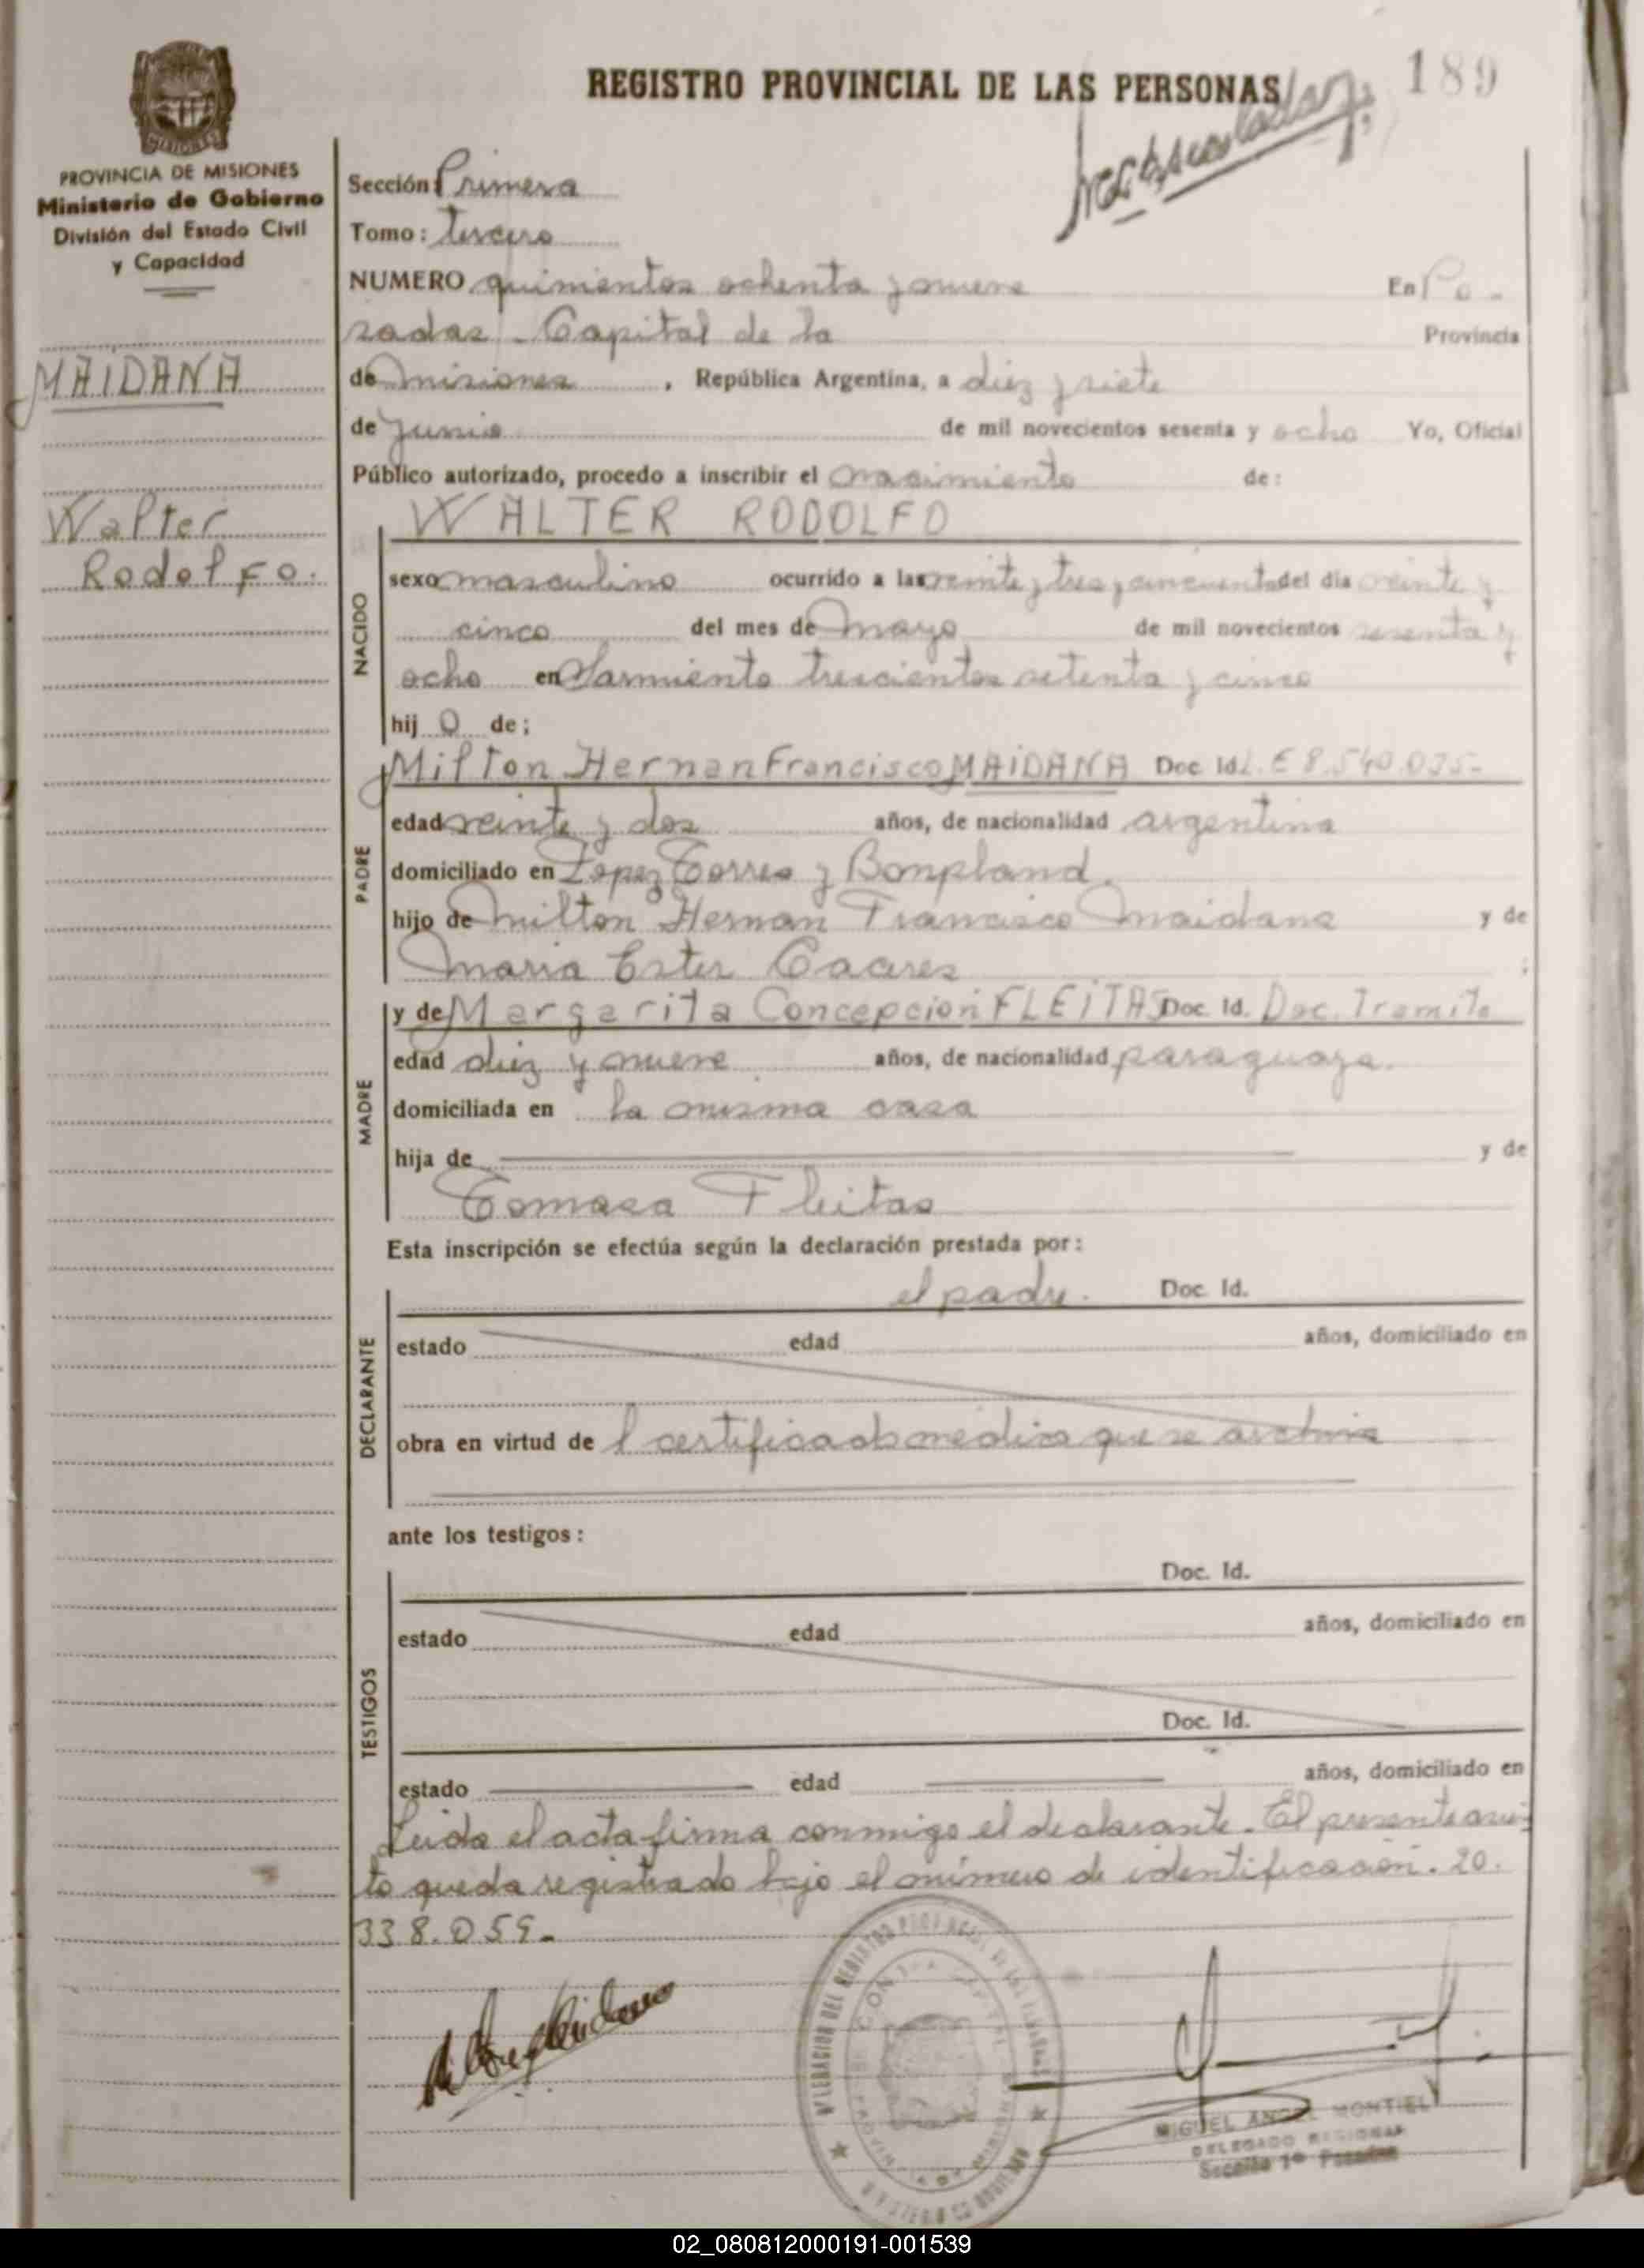 189
REGISTRO PROVINCIAL DE LAS PERSONAS
MISIONES
PROVINCIA DE MISIONES
Ministerio de Gobierno
División del Estado Civil
y Capacidad
MAIDANA
Walter
Rodolfo.
Sección: Primera
Tomo: tercero
NUMERO quinientos ochenta y nueve En Po-
sadas - Capital de la Provincia
de Misiones, República Argentina, a diez y siete
de junio de mil novecientos sesenta y ocho Yo, Oficial
Público autorizado, procedo a inscribir el nacimiento de:
WALTER RODOLFO
NACIDO
sexo masculino ocurrido a las veinte y tres y cincuenta del día veinte y
cinco del mes de mayo de mil novecientos sesenta y
ocho en Sarmiento trescientos setenta y cinco
hij o de;
PADRE
Milton Hernan Francisco MAIDANA Doc. Id. L.E 8.540.035-
edad veinte y dos años, de nacionalidad argentina
domiciliado en Lopez Torres y Bonpland.
hijo de Milton Hernan Francisco Maidana y de
Maria Ester Caceres ;
MADRE
y de Margarita Concepcion FLEITAS Doc. Id. Doc. Tramite
edad diez y nueve años, de nacionalidad paraguaya.
domiciliada en la misma casa
hija de y de
Tomasa Fleitas
Esta inscripción se efectúa según la declaración prestada por:
DECLARANTE
el padre. Doc. Id.
estado edad años, domiciliado en
obra en virtud de l certificado medico que se archiva
ante los testigos:
TESTIGOS
Doc. Id.
estado edad años, domiciliado en
Doc. Id.
estado edad años, domiciliado en
Leida el acta firma conmigo el declarante. El presente asien
to queda registrado bajo el número de identificación. 20.
338.059.-
MIGUEL ANGEL MONTIEL
DELEGADO REGIONAL
Sección 1ª Posadas
02_080812000191-001539